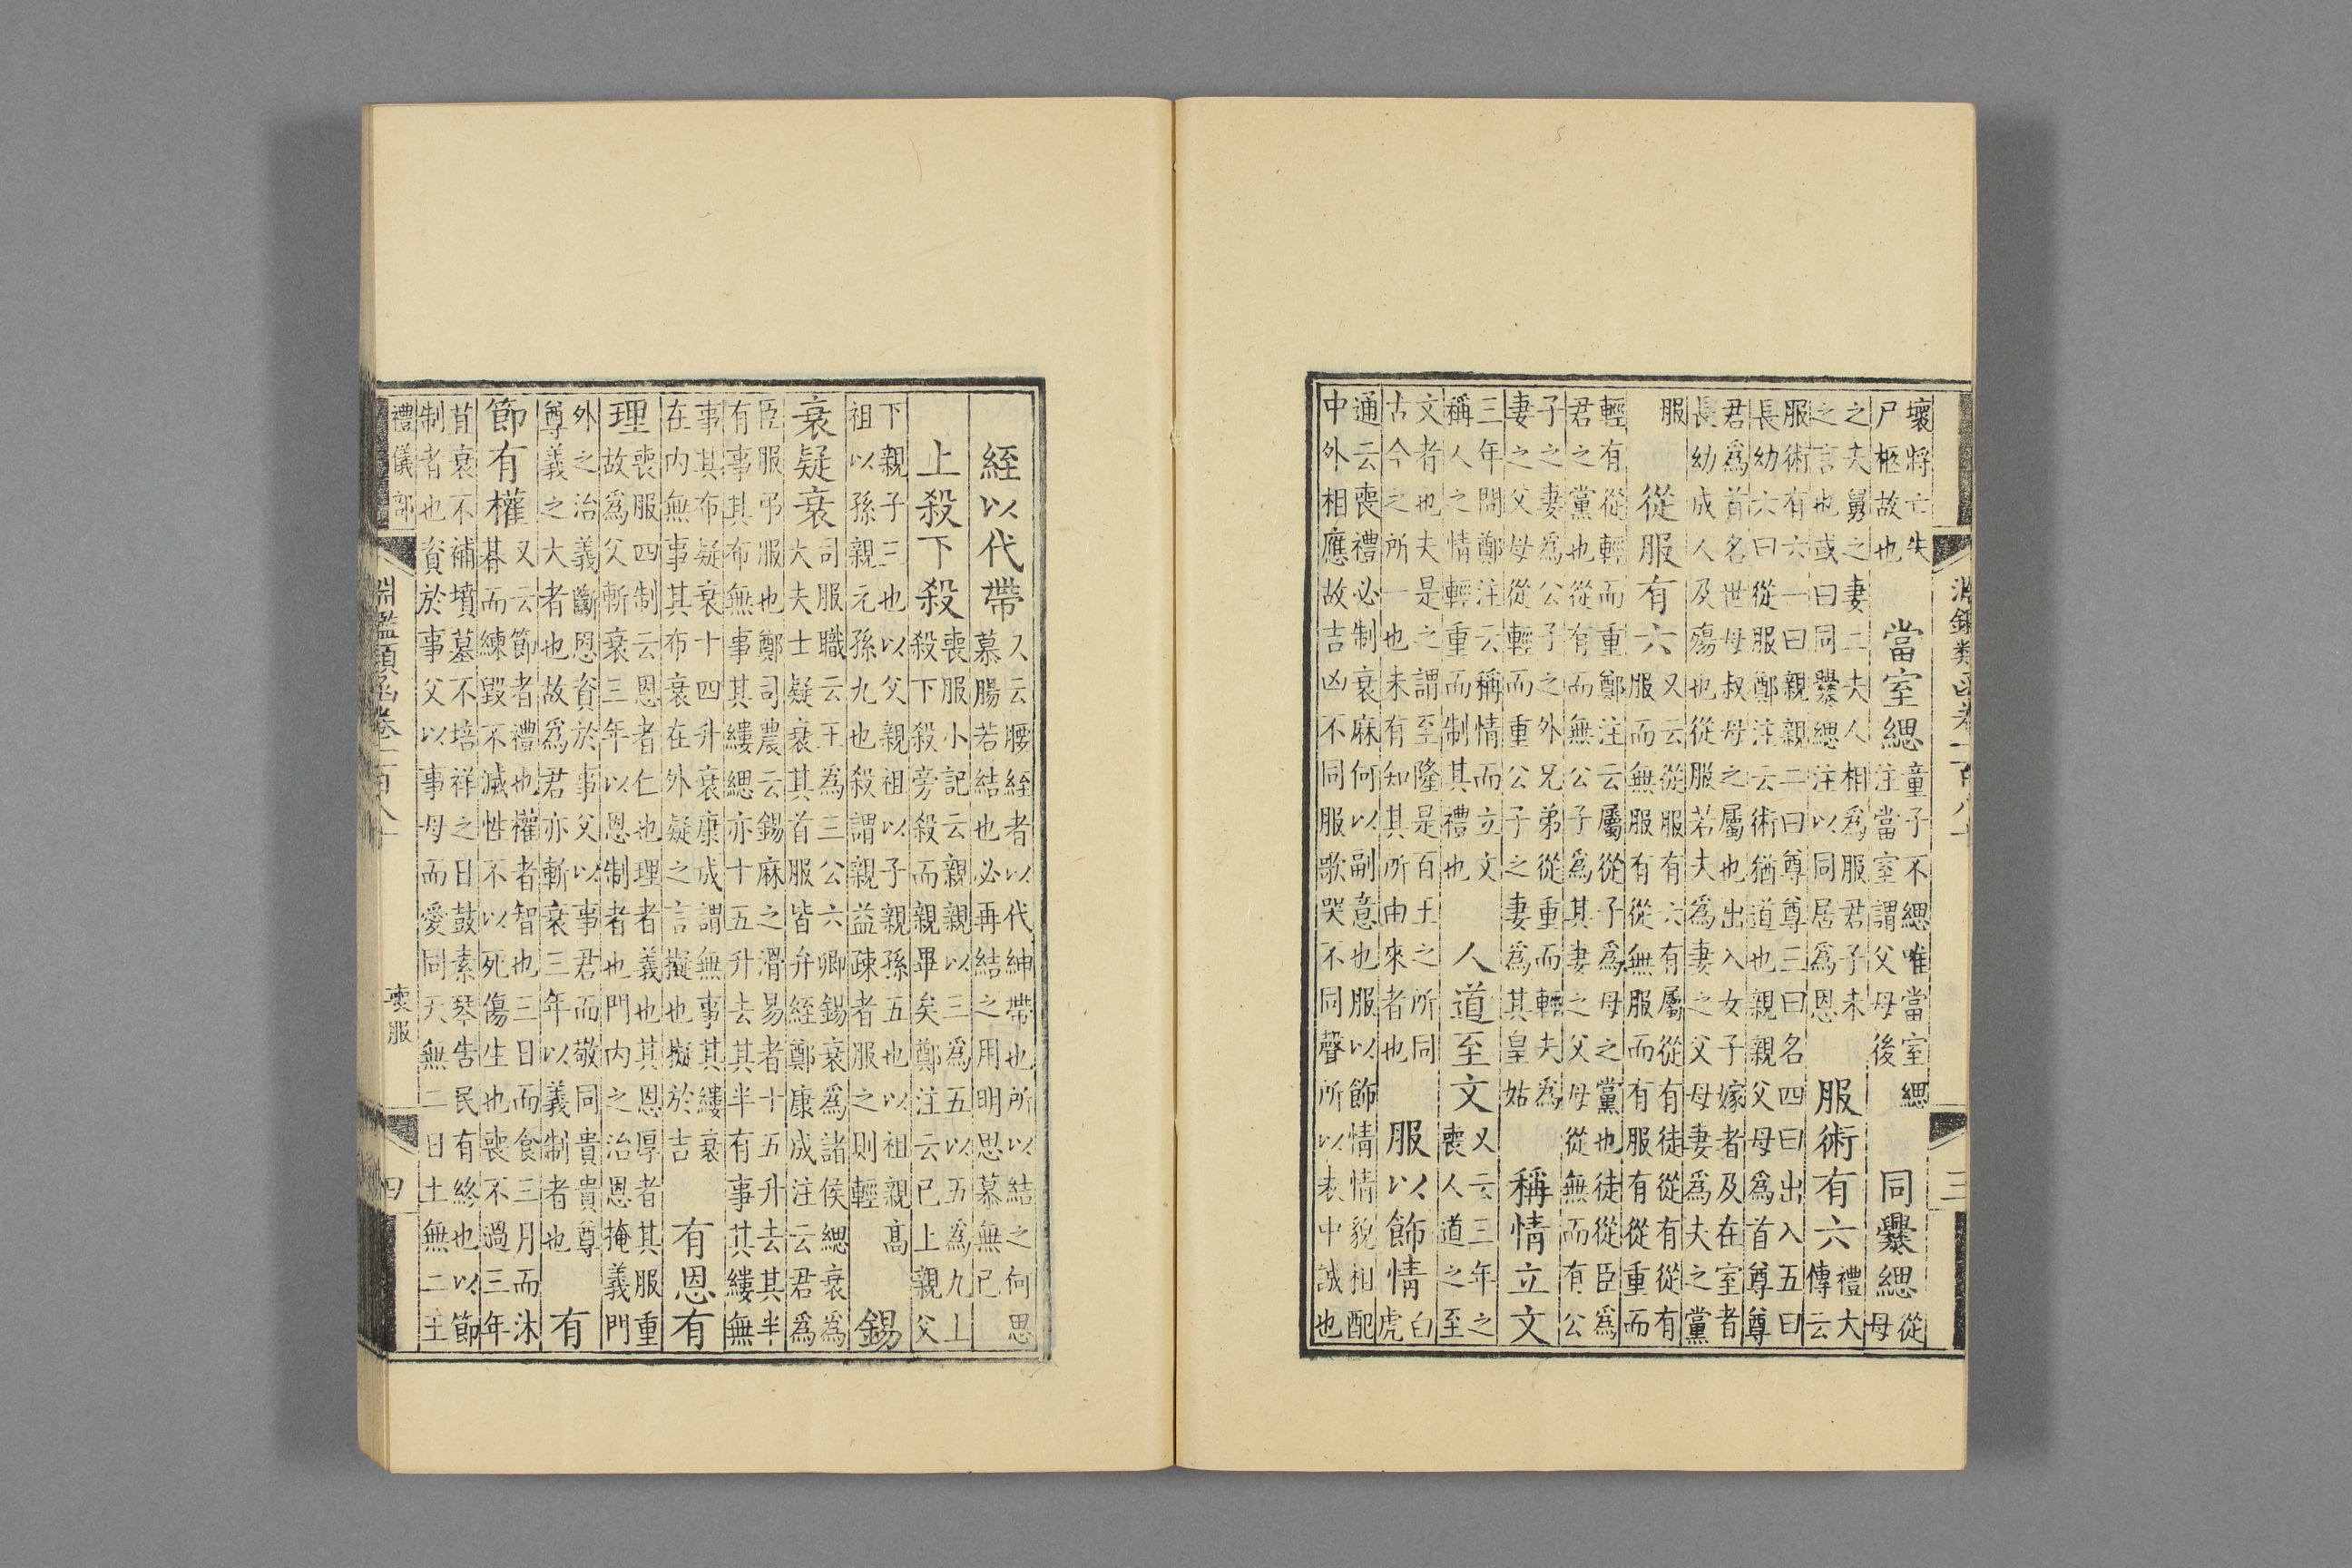 淵鑑類函卷一百八十
三
壞將亡失
尸柩故也
當室緦
童子不緦唯當室緦
注當室謂父母後
同爨緦
從
母
之夫舅之妻二夫人相爲服君子未
之言也或曰同爨緦注以同居爲恩
服術有六
禮大
傳云
服術有六一曰親親二曰尊尊三曰名四曰出入五曰
長幼六曰從服鄭注云術猶道也親親父母爲首尊尊
君爲首名世母叔母之屬也出入女子嫁者及在室者
長幼成人及殤也從服若夫爲妻之父母妻爲夫之黨
服
從服有六
又云從服有六有屬從有徒從有從有
服而無服有從無服而有服有從重而
輕有從輕而重鄭注云屬從子爲母之黨也徒從臣爲
君之黨也從有而無公子爲其妻之父母從無而有公
子之妻爲公子之外兄弟從重而輕夫爲
妻之父母從輕而重公子之妻爲其皇姑
稱情立文
三年問鄭注云稱情而立文
稱人之情輕重而制其禮也
人道至文
又云三年之
喪人道之至
文者也夫是之謂至隆是百王之所同
古今之所一也未有知其所由來者也
服以飾情
白
虎
通云喪禮必制衰麻何以副意也服以飾情情貌相配
中外相應故吉凶不同服歌哭不同聲所以表中誠也
絰以代帶
又云腰絰者以代紳帶也所以結之何思
慕腸若結也必再結之用明思慕無已
上殺下殺
喪服小記云親親以三爲五以五爲九上
殺下殺旁殺而親畢矣鄭注云已上親父
下親子三也以父親祖以子親孫五也以祖親高
祖以孫親元孫九也殺謂親益疎者服之則輕
錫
衰疑衰
司服職云王爲三公六卿錫衰爲諸侯緦衰爲
大夫士疑衰其首服皆弁絰鄭康成注云君爲
臣服弔服也鄭司農云錫麻之滑易者十五升去其半
有事其布無事其縷緦亦十五升去其半有事其縷無
事其布疑衰十四升衰康成謂無事其縷衰
在内無事其布衰在外疑之言擬也擬於吉
有恩有
理
喪服四制云恩者仁也理者義也其恩厚者其服重
故爲父斬衰三年以恩制者也門内之治恩掩義門
外之治義斷恩資於事父以事君而敬同貴貴尊
尊義之大者也故爲君亦斬衰三年以義制者也
有
節有權
又云節者禮也權者智也三日而食三月而沐
朞而練毀不滅性不以死傷生也喪不過三年
苴衰不補墳墓不培祥之日鼓素琴告民有終也以節
制者也資於事父以事母而愛同天無二日土無二主
禮儀部
淵鑑類函卷一百八十
喪服
四